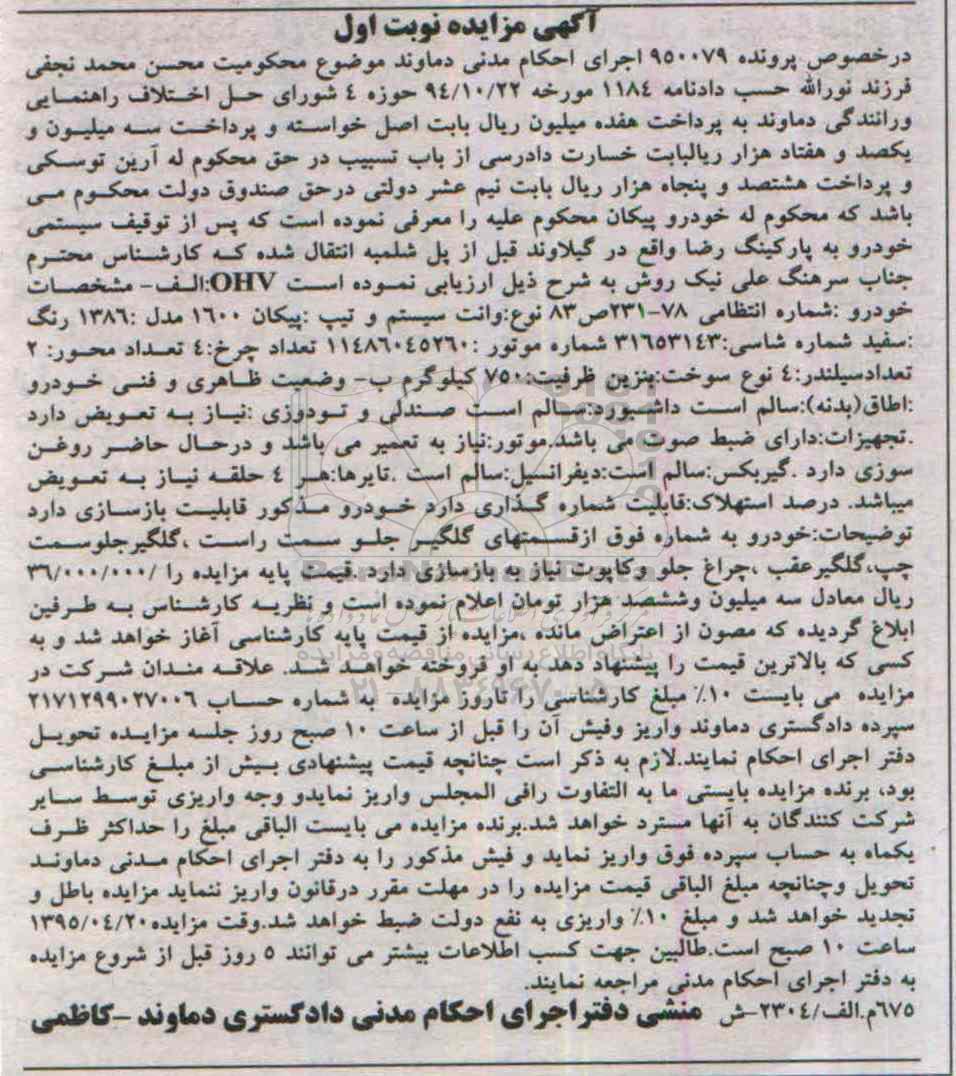 آگهی مزایده نوبت اول
درخصوص پرونده ۹۵۰۰۷۹ اجرای احکام مدنی دماوند موضوع محکومیت محسن محمد نجفی
فرزند نورالله حسب دادنامه ۱۱۸٤ مورخه ۹٤/۱۰/۲۲ حوزه ٤ شورای حل اختلاف راهنمایی
ورانندگی دماوند به پرداخت هفده میلیون ریال بابت اصل خواسته و پرداخت سه میلیون و
یکصد و هفتاد هزار ریالبابت خسارت دادرسی از باب تسبیب در حق محکوم له آرین توسکی
و پرداخت هشتصد و پنجاه هزار ریال بابت نیم عشر دولتی درحق صندوق دولت محکوم می
باشد که محکوم له خودرو پیکان محکوم علیه را معرفی نموده است که پس از توقیف سیستمی
خودرو به پارکینگ رضا واقع در گیلاوند قبل از پل شلمبه انتقال شده که کارشناس محترم
جناب سرهنگ علی نیک روش به شرح ذیل ارزیابی نموده است OHV:الف- مشخصات
خودرو :شماره انتظامی ۷۸-۲۳۱ص۸۳ نوع:وانت سیستم و تیپ :پیکان ۱۶۰۰ مدل :۱۳۸۶ رنگ
:سفید شماره شاسی:۳۱۶۵۳۱۴۳ شماره موتور :۱۱٤۸۶۰٤۵۲۶۰ تعداد چرخ:٤ تعداد محور: ۲
تعدادسیلندر:٤ نوع سوخت:بنزین ظرفیت:۷۵۰ کیلوگرم ب- وضعیت ظاهری و فنی خودرو
:اطاق(بدنه):سالم است داشبورد:سالم است صندلی و تودوزی :نیاز به تعویض دارد
.تجهیزات:دارای ضبط صوت می باشد.موتور:نیاز به تعمیر می باشد و درحال حاضر روغن
سوزی دارد .گیربکس:سالم است:دیفرانسیل:سالم است .تایرها:هر ٤ حلقه نیاز به تعویض
میباشد. درصد استهلاک:قابلیت شماره گذاری دارد خودرو مذکور قابلیت بازسازی دارد
توضیحات:خودرو به شماره فوق ازقسمتهای گلگیر جلو سمت راست ،گلگیرجلوسمت
چپ،گلگیرعقب ،چراغ جلو وکاپوت نیاز به بازسازی دارد.قیمت پایه مزایده را /۳۶/۰۰۰/۰۰۰
ریال معادل سه میلیون وششصد هزار تومان اعلام نموده است و نظریه کارشناس به طرفین
ابلاغ گردیده که مصون از اعتراض مانده ،مزایده از قیمت پایه کارشناسی آغاز خواهد شد و به
کسی که بالاترین قیمت را پیشنهاد دهد به او فروخته خواهد شد. علاقه مندان شرکت در
مزایده می بایست ۱۰٪ مبلغ کارشناسی را تاروز مزایده به شماره حساب ۲۱۷۱۲۹۹۰۲۷۰۰۶
سپرده دادگستری دماوند واریز وفیش آن را قبل از ساعت ۱۰ صبح روز جلسه مزایده تحویل
دفتر اجرای احکام نمایند.لازم به ذکر است چنانچه قیمت پیشنهادی بیش از مبلغ کارشناسی
بود، برنده مزایده بایستی ما به التفاوت رافی المجلس واریز نمایدو وجه واریزی توسط سایر
شرکت کنندگان به آنها مسترد خواهد شد.برنده مزایده می بایست الباقی مبلغ را حداکثر ظرف
یکماه به حساب سپرده فوق واریز نماید و فیش مذکور را به دفتر اجرای احکام مدنی دماوند
تحویل وچنانچه مبلغ الباقی قیمت مزایده را در مهلت مقرر درقانون واریز ننماید مزایده باطل و
تجدید خواهد شد و مبلغ ۱۰٪ واریزی به نفع دولت ضبط خواهد شد.وقت مزایده ۱۳۹۵/۰٤/۲۰
ساعت ۱۰ صبح است.طالبین جهت کسب اطلاعات بیشتر می توانند ۵ روز قبل از شروع مزایده
به دفتر اجرای احکام مدنی مراجعه نمایند.
۶۷۵م.الف/۲۳۰٤-ش منشی دفتراجرای احکام مدنی دادگستری دماوند -کاظمی